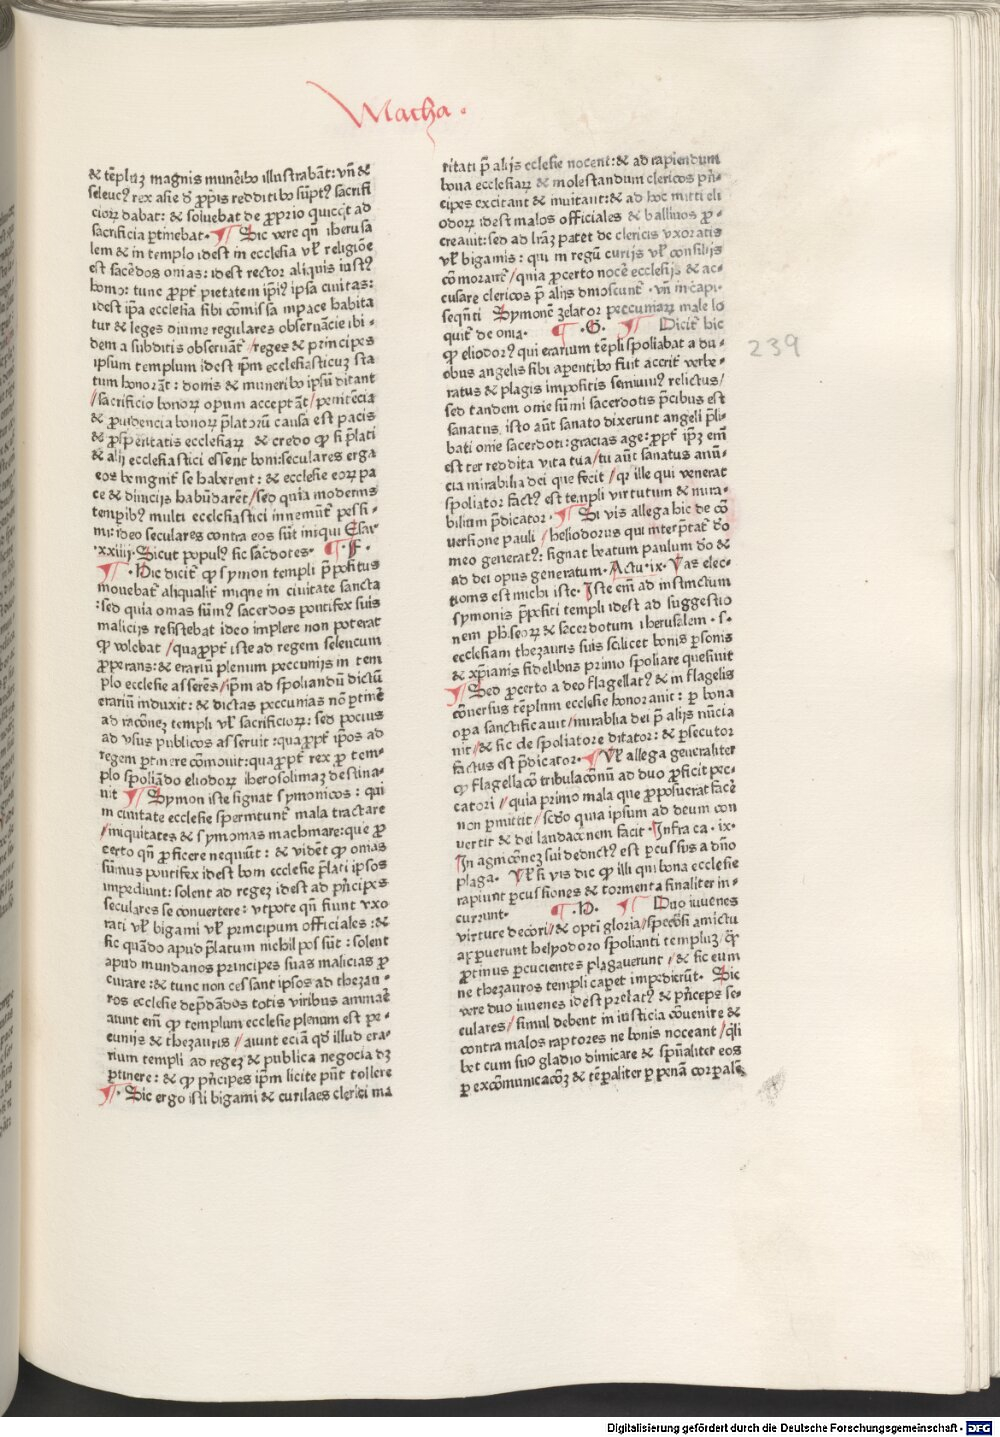 Macha .
& tēpluʒ magnis munēibꝰ illustrabāt: vñ &
seleucꝰ rex asie ð ꝓpijs redditibꝰ sūptꝰ sacrifi
cioꝝ dabat: & soluebat de ꝓprio quicqt ad
sacrificia ꝑtinebat. ¶ Sic vere qñ iherusa
lem & in templo idest in ecclesia vl̄ religiōe
est sacēdos onias: idest rector aliquis iustꝰ
homo: tunc ꝓpt̄ pietatem ip̄iꝰ ipsa ciuitas:
idest ip̄a ecclesia sibi cōmissa in pace habita
tur & leges diuine regulares obseruācie ibi-
dem a subditis obseruāt̄ / reges & principes
ipsum templum idest ip̄m ecclesiasticuʒ sta
tum honorāt: donis & muneribꝰ ipsū ditant
/ sacrificio bonoꝝ operum acceptāt / penitēcia
& ꝓuidencia bonoꝝ p̄latorū causa est pacis
& ꝓsꝑitatis ecclesiaꝝ & credo ꝙ si p̄lati
& alij ecclesiastici essent boni: seculares erga
eos benignit̄ se haberent: & ecclesie eoꝝ pa
ce & diuicijs habūdarēt / sed quia modernis
temꝑibꝰ multi ecclesiastici inueniunt̄ pessi-
mi: ideo seculares contra eos sūt iniqui Esai.
.xxiiij. Sicut populꝰ sic sac̄dotes. ¶ .F.
¶ . Hic dicit̄ ꝙ symon templi p̄positus
mouebat̄ aliqualit̄ inique in ciuitate sancta
: sed quia onias sūmꝰ sacerdos pontifex suis
malicijs resistebat ideo implere non poterat
ꝙ volebat / quaꝓpt̄ iste ad regem seleucum
ꝓperans: & erariū plenum peccunijs in tem
plo ecclesie asserēs / ip̄m ad spoliandū dictū
erariū induxit: & dictas peccunias nō ꝑtinē
ad racōneʒ templi vl̄ sacrificioꝝ: sed pocius
ad vsus publicos asseruit: quaꝓpt̄ ip̄os ad
regem ꝑtinere cōmouit: quaꝓpt̄ rex ꝓ tem-
plo spoliādo eliodoꝝ iherosolimaʒ destina-
uit ¶ Symon iste signat symonicos: qui
in ciuitate ecclesie spermtunt̄ mala tractare
/ iniquitates & symonias machinare: que ꝓ
certo qñ ꝓficere nequiūt: & vidēt ꝙ onias
sūmus pontifex idest boni ecclesie p̄lati ipsos
impediunt: solent ad regeʒ idest ad p̄ncipes
seculares se conuertere: vtpote qñ fiunt vxo
rati vl̄ bigami vl̄ principum officiales: &
sic quādo apud p̄latum nichil possūt: solent
apud mundanos principes suas malicias ꝓ
curare: & tunc non cessant ipsos ad thezau-
ros ecclesie dep̄dādos totis viribus animaē
aiunt em̄ ꝙ templum ecclesie plenum est pe-
cunijs & thezauris / aiunt eciā qd̄ illud era-
rium templi ad regeʒ & publica negocia dʒ
ꝑtinere: & ꝙ p̄ncipes ip̄m licite pn̄t tollere
¶ . Sic ergo isti bigami & curilaes clerici ma
ritati p̄ alijs ecclesie nocent: & ad rapiendum
bona ecclesiaꝝ & molestandum clericos p̄n-
cipes excitant & inuitant: & ad hoc mitti eli
odoꝝ idest malos officiales & balliuos ꝓ-
creauit: sed ad l̄raʒ patet de clericis vxoratis
vl̄ bigamis: qui in regū curijs vl̄ consilijs
cōmorant̄ / quia ꝓcerto nocē ecclesijs & ac-
cusare clericos p̄ alijs dnioscunt̄. vñ in capi.
seqn̄ti Symonē zelator peccuniaꝝ male lo
quit̄ de onia. ¶ .G. ¶ Dicit̄ hic
ꝙ eliodorꝰ qui erarium tēpli spoliabat a du-
obus angelis sibi aꝑentibꝰ fuit acrit̄ verbe-
ratus & plagis impositis semiuiuꝰ relictus /
sed tandem onie sūmi sacerdotis p̄cibus est
sanatus. isto aūt sanato dixerunt angeli p̄li-
bati onie sacerdoti: gracias age: ꝓpt̄ ip̄ʒ em̄
est ter reddita vita tua / tu aūt sanatus anū-
cia mirabilia dei que fecit / qr ille qui venerat
spoliator factꝰ est templi virtutum & mira-
bilium p̄dicator. ¶ Si vis allega hic de cō
uersione pauli / heliodorus qui interp̄tat̄ dō
meo generatꝰ: signat beatum paulum dō &
ad dei opus generatum. Actu. ix. Vas elec-
tionis est michi iste. Iste em̄ ad instinctum
symonis p̄positi templi idest ad suggestio
nem ph̄iseoꝝ & sacerdotum iherusalem .s.
ecclesiam thezauris suis scilicet bonis ꝑsonis
& xp̄ianis fidelibus primo spoliare quesiuit
¶ Sed ꝓcerto a deo flagellatꝰ & in flagelis
cōuersus templum ecclesie honorauit: ꝑ bona
oꝑa sanctificauit / mirablia dei p̄ alijs nūcia
uit / & sic de spoliatore ditator: & ꝑsecutor
factus est p̄dicator. ¶ Vl̄ allega generaliter
ꝙ flagellacō tribulacōnū ad duo ꝓficit pec-
catori / quia primo mala que ꝓposucrat facē
non ꝑmittit / scd̄o quia ipsum ad deum con
uertit & dei laudacōnem facit. Infra ca. ix.
In agnicōneʒ sui deductꝰ est ꝑcussus a dn̄o
plaga. Vl̄ si vis dic ꝙ illi qui bona ecclesie
rapiunt ꝑcussiones & tormenta finaliter in-
currunt. ¶ .H. ¶ Duo iuuenes
virtute decori / & opti gloria / specōsi amictu
apꝑuerunt helyodoro spolianti templuʒ / qr̄
ꝓtinus ꝑcucientes plagauerunt / & sic eum
ne thezauros templi caꝑet impedierūt. Sic
vere duo iuuenes idest prelatꝰ & p̄nceps se-
culares / simul debent in iusticia cōuenire &
contra malos raptores ne bonis noceant / qli
bet cum suo gladio dimicare & spūaliter eos
ꝑ excōmunicacōʒ & tēꝑaliter ꝑ penā corꝑalē
239
Digitalisierung gefördert durch die Deutsche Forschungsgemeinschaft - DFG